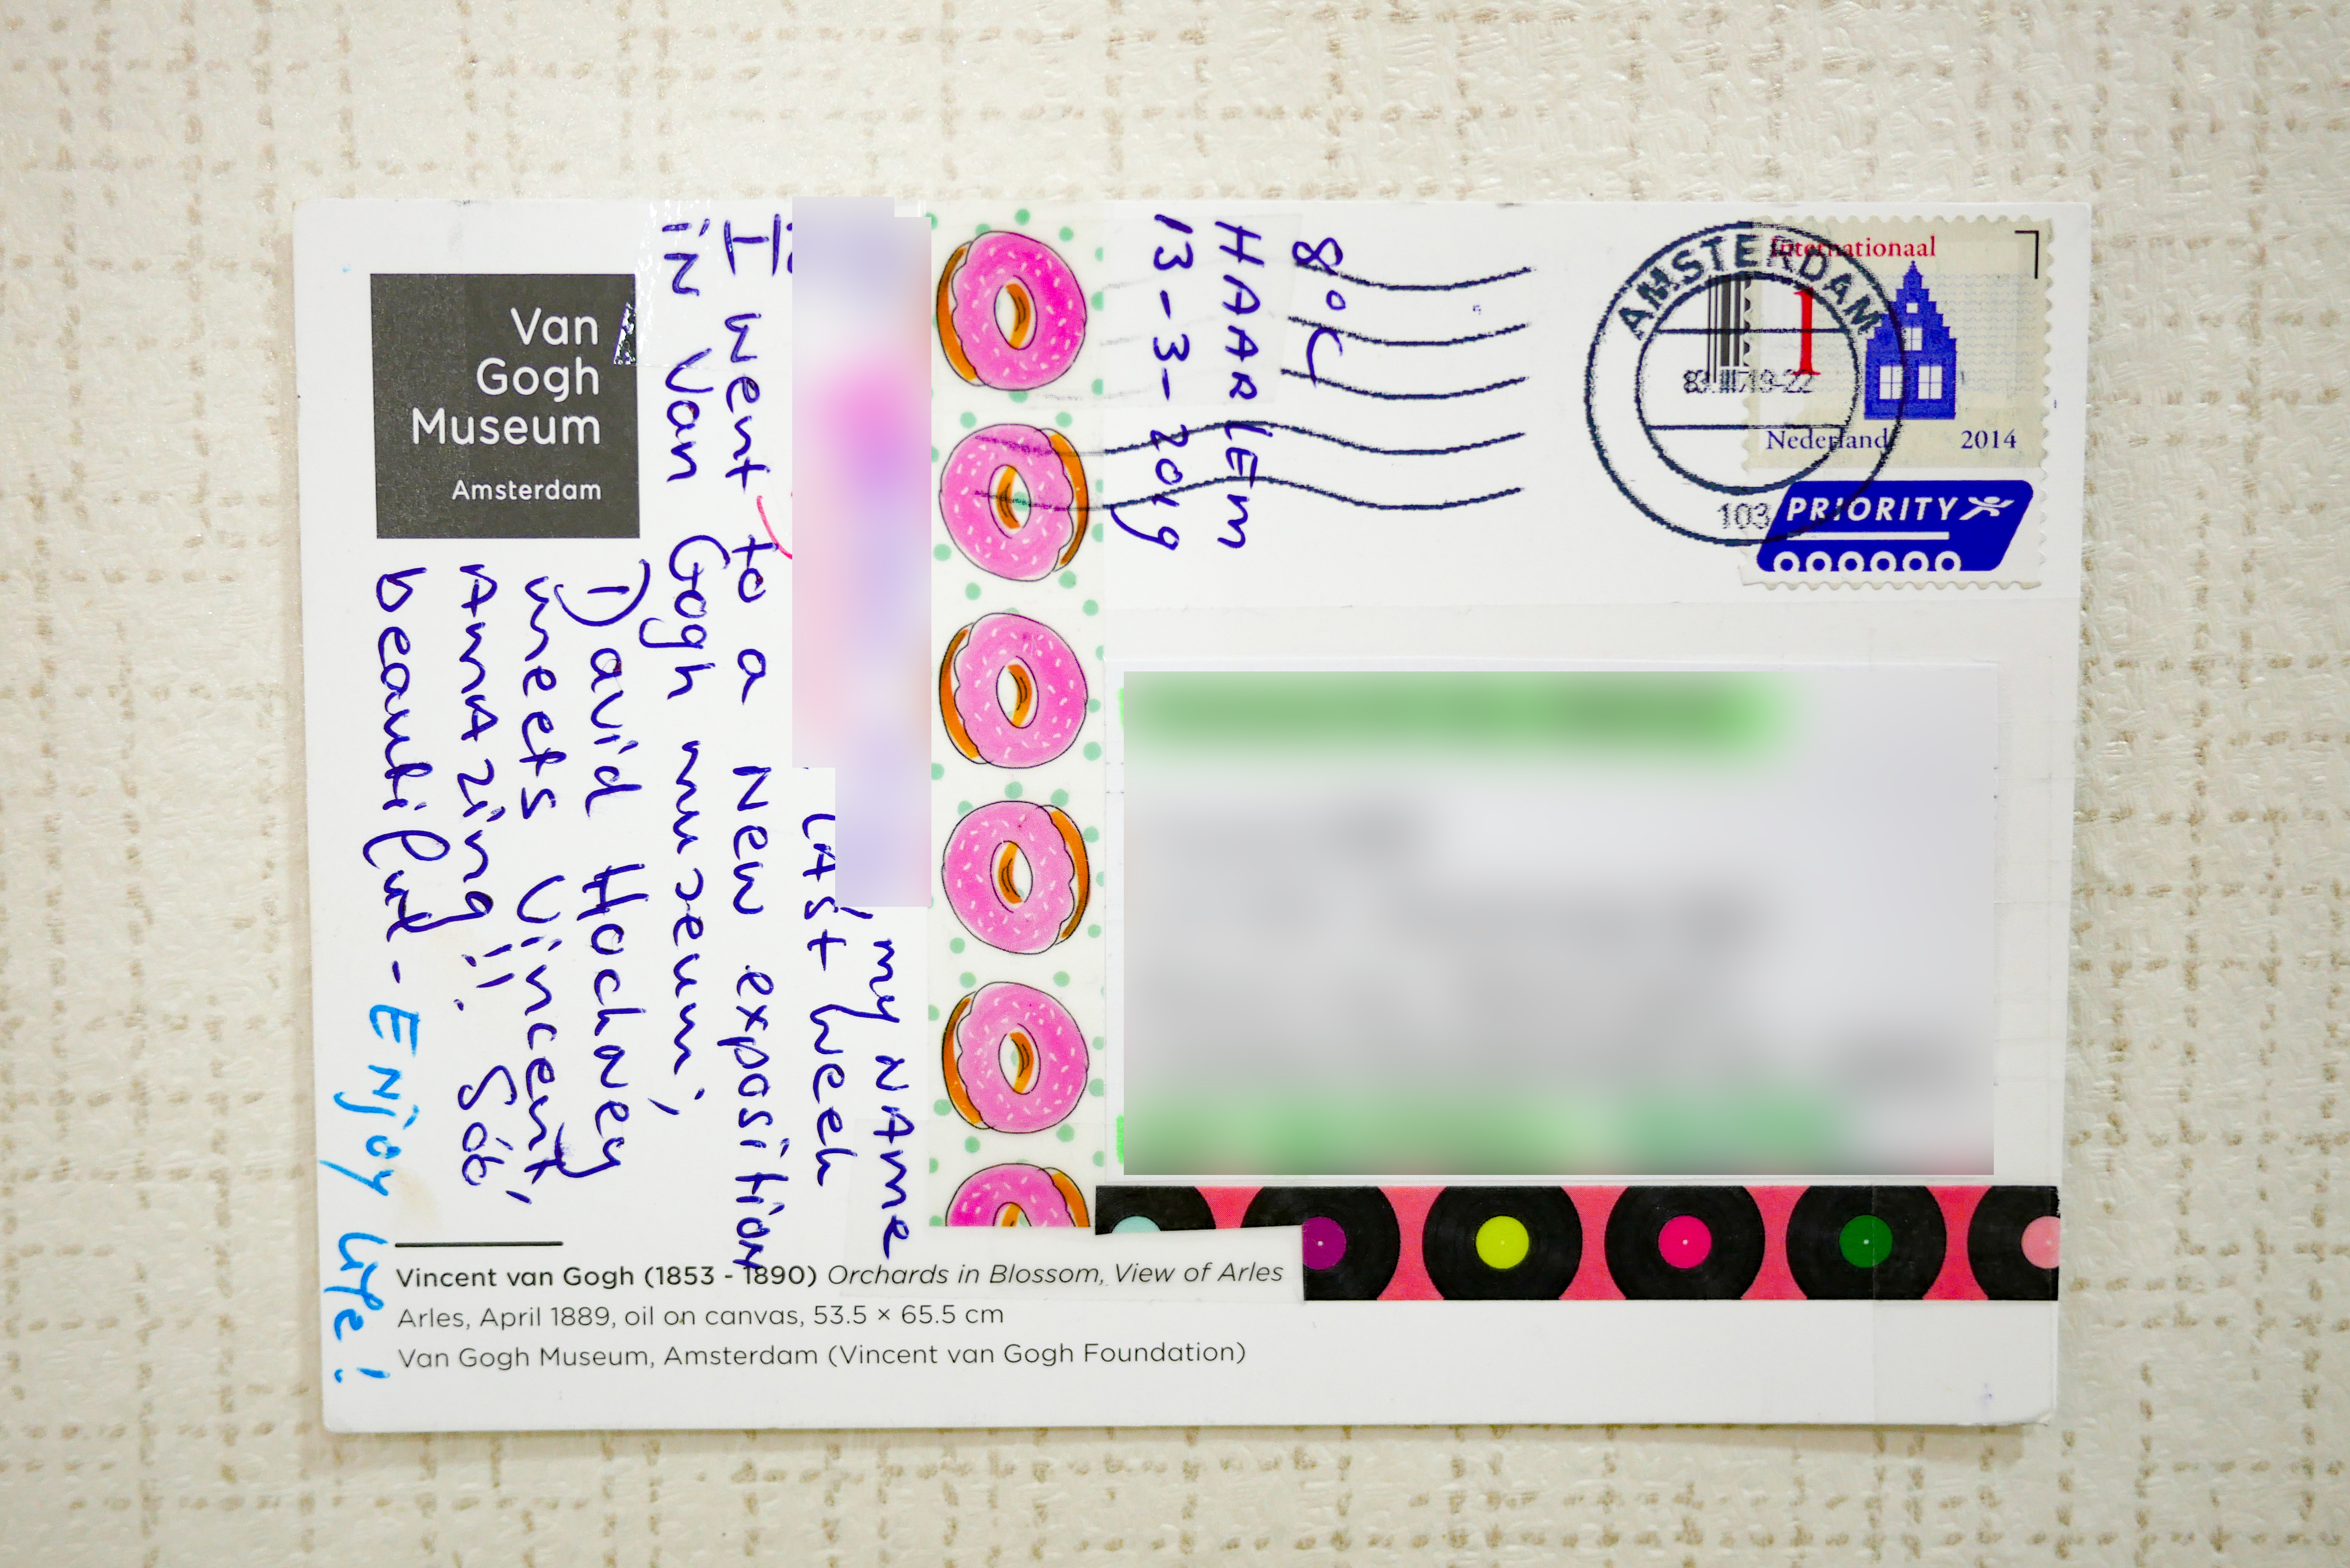 Van
Gogh
Museum
Amsterdam
8°C
HAARLEM
13-3-2019
my NAme
LAst week
I went to a New exposition
in Van Gogh museum,
David Hockney
meets Vincent,
AmAzing!! Soo
beautiful - Enjoy Life!
AMSTERDAM
103
Internationaal
1
Nederland 2014
PRIORITY
Vincent van Gogh (1853 - 1890) Orchards in Blossom, View of Arles
Arles, April 1889, oil on canvas, 53.5 × 65.5 cm
Van Gogh Museum, Amsterdam (Vincent van Gogh Foundation)